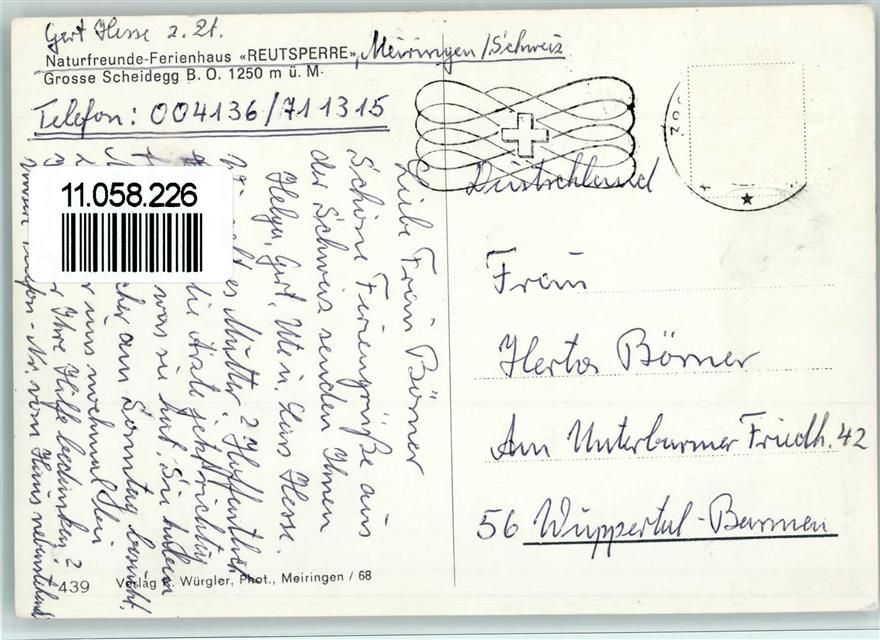 Gert Hesse z. Zt.
Naturfreunde-Ferienhaus «REUTSPERRE», Meiringen/Schweiz
Grosse Scheidegg B. O. 1250 m ü. M.
Telefon: 004136/711315
Liebe Frau Börner
Schöne Feriengrüße aus
der Schweiz senden Ihnen
Helga, Gert, Ute u. Lars Hesse.
geht es Mutter? Hoffentlich
die Ärzte jetzt richtig
was sie hat. Sie haben
am Sonntag besucht.
uns nochmal für
Ihre Hilfe bedanken?
Telefon-Nr. vom Haus nebenstehend
11.058.226
Deutschland
Frau
Herta Börner
Am Unterbarmer Friedh. 42
56 Wuppertal-Barmen
439 Verlag K. Würgler, Phot., Meiringen / 68